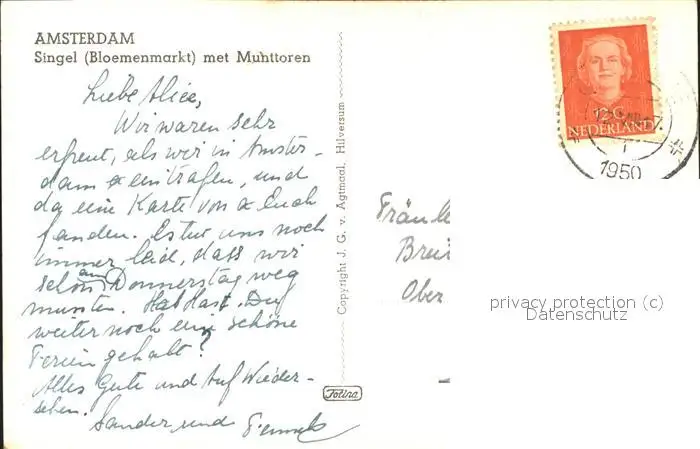 AMSTERDAM
Singel (Bloemenmarkt) met Munttoren
Liebe Alice,
Wir waren sehr
erfreut, als wir in Amster-
dam eintrafen, und
da eine Karte von Euch
fanden. Es tut uns noch
immer leid, dass wir
schon am Donnerstag weg
mussten. Hat Hast Du
weiter noch eine schöne
Ferien gehabt?
Alles Gute und Auf Wieder-
sehen.
Sander und
Copyright J. G. v. Agtmaal, Hilversum
Fotina
12 C
NEDERLAND
1950
Fräule
Brei
Ober
privacy protection (c)
Datenschutz